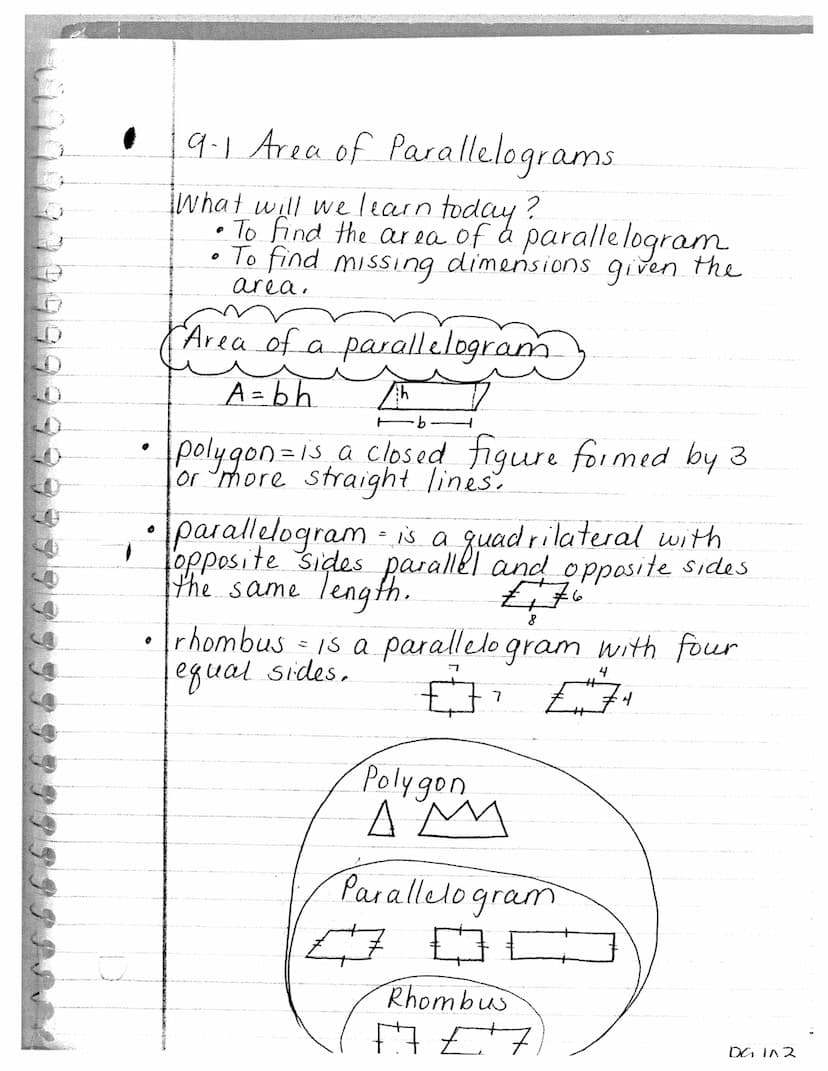 9-1 Area of Parallelograms
What will we learn today?
• To find the area of a parallelogram
• To find missing dimensions given the
area.
Area of a parallelogram
A = bh
h
b
• polygon = is a closed figure formed by 3
or more straight lines.
• parallelogram = is a quadrilateral with
opposite sides parallel and opposite sides
the same length.
6
8
• rhombus = is a parallelogram with four
equal sides.
7
7
4
4
Polygon
Parallelogram
Rhombus